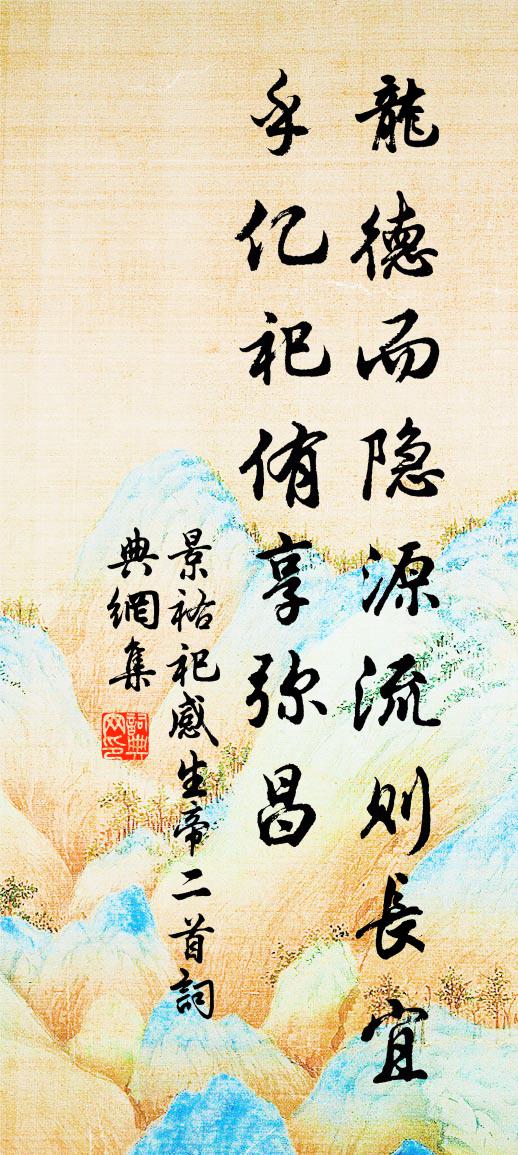 龍德而隐源流则長宜
乎亿祀侑享弥昌
景祐祀感生帝二首詞
典網集
詞典網印